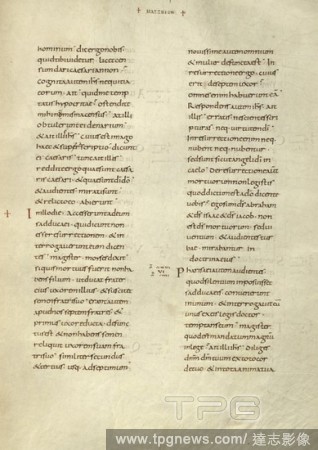 hominum dic ergo nobis
quid tibi uidetur licet cen
sum dari caesari an non
Cognita autem ihs nequitia
eorum ait quid me temp
tatis hypocritae ostendite
mihi nomisma census at illi
obtulerunt ei denarium
& ait illis ihs cuius est imago
haec & superscriptio dicunt
ei caesaris tunc ait illis
reddite ergo quae sunt caesa
ris caesari & quae sunt di do
& audientes mirati sunt
& relicto eo abierunt
In illo die accesserunt ad eum
sadducaei qui dicunt non
esse resurrectionem & in
terrogauerunt eum dicen
tes magister moses dixit
si quis mortuus fuerit non ha
bens filium ut ducat frater
eius uxorem illius & suscitet
semen fratri suo erant autem
apud nos septem fratres &
primus uxore ducta defunc
tus est & non habens semen
reliquit uxorem suam fra
tri suo similiter secundus
& tertius usq ad septimum
nouissime autem omnium
& mulier defuncta est In
resurrectione ergo cuius
erit de septem uxor
omnes enim habuerunt eā
Respondens autem ihs ait
illis erratis nescientes scrip
turas neq uirtutem di
In resurrectione enim neq
nubent neq nubentur
sed sunt sicut angeli di in
caelo De resurrectione autē
mortuorum non legistis
quod dictum est a do dicente
uobis ego sum ds abraham
& ds isaac & ds iacob non
est ds mortuorum sed ui
uentium & audientes tur
bae mirabantur in
doctrina eius
Pharisaei autem audientes
quod silentium imposuisset
sadducaeis conuenerunt
in unum & interrogauit eū
unus ex eis legis doctor
temptans eum magister
quod est mandatum magnū
in lege ait illi ihs Diliges
dnm dm tuum ex toto cor
de tuo & in tota anima tua
TPG
www.tpgnews.com/達志影像